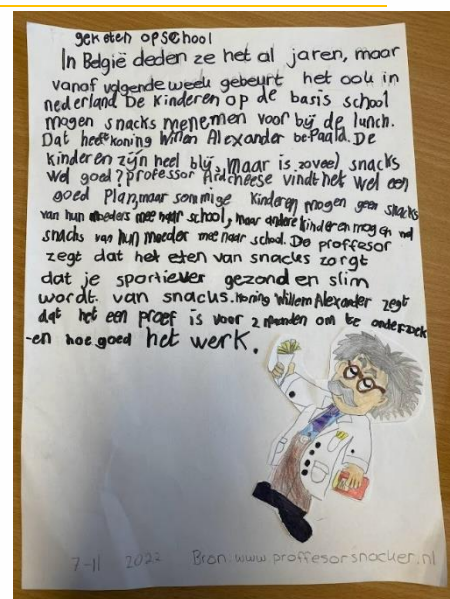 gek eten op school
In België deden ze het al jaren, maar
vanaf volgende week gebeurt het ook in
nederland De kinderen op de basis school
mogen snacks menemen voor bij de lunch.
Dat heeft koning Willen Alexander bepaald. De
kinderen zijn heel blij. Maar is zoveel snacks
wel goed? professor Aidcheese vindt het wel een
goed Plan, maar sommige kinderen mogen geen snacks
van hun moeders mee naar school, maar andere kinderen mogen wel
snachs van hun moeder mee naar school. De proffesor
zegt dat het eten van snacks zorgt
dat je sportiever gezond en slim
wordt. van snacus. Koning Willem Alexander zegt
dat het een proef is voor 2 maanden om te onderzoek
-en hoe goed het werk.
7-11 2022 Bron: www.proffesorsnacker.nl